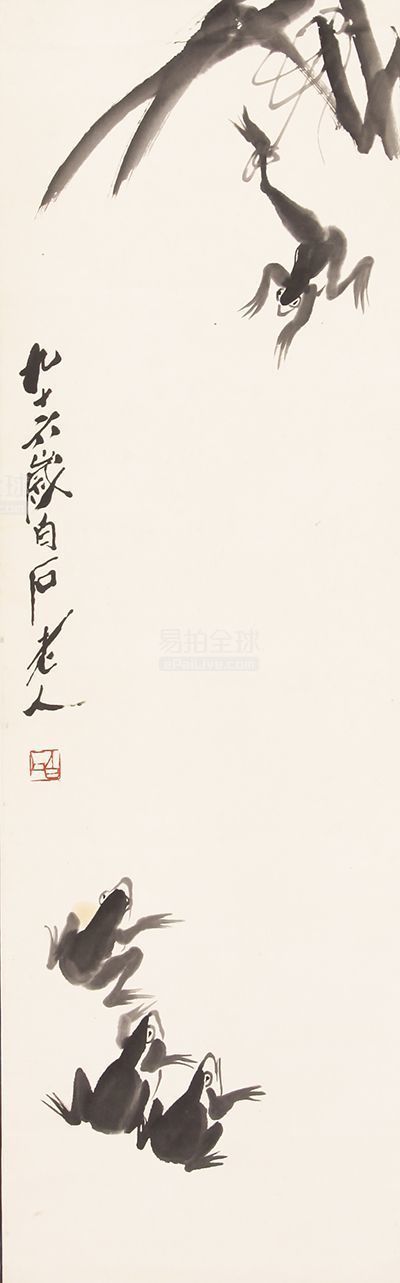 九十六歲白石老人
白石
易拍全球
ePaiLive.com